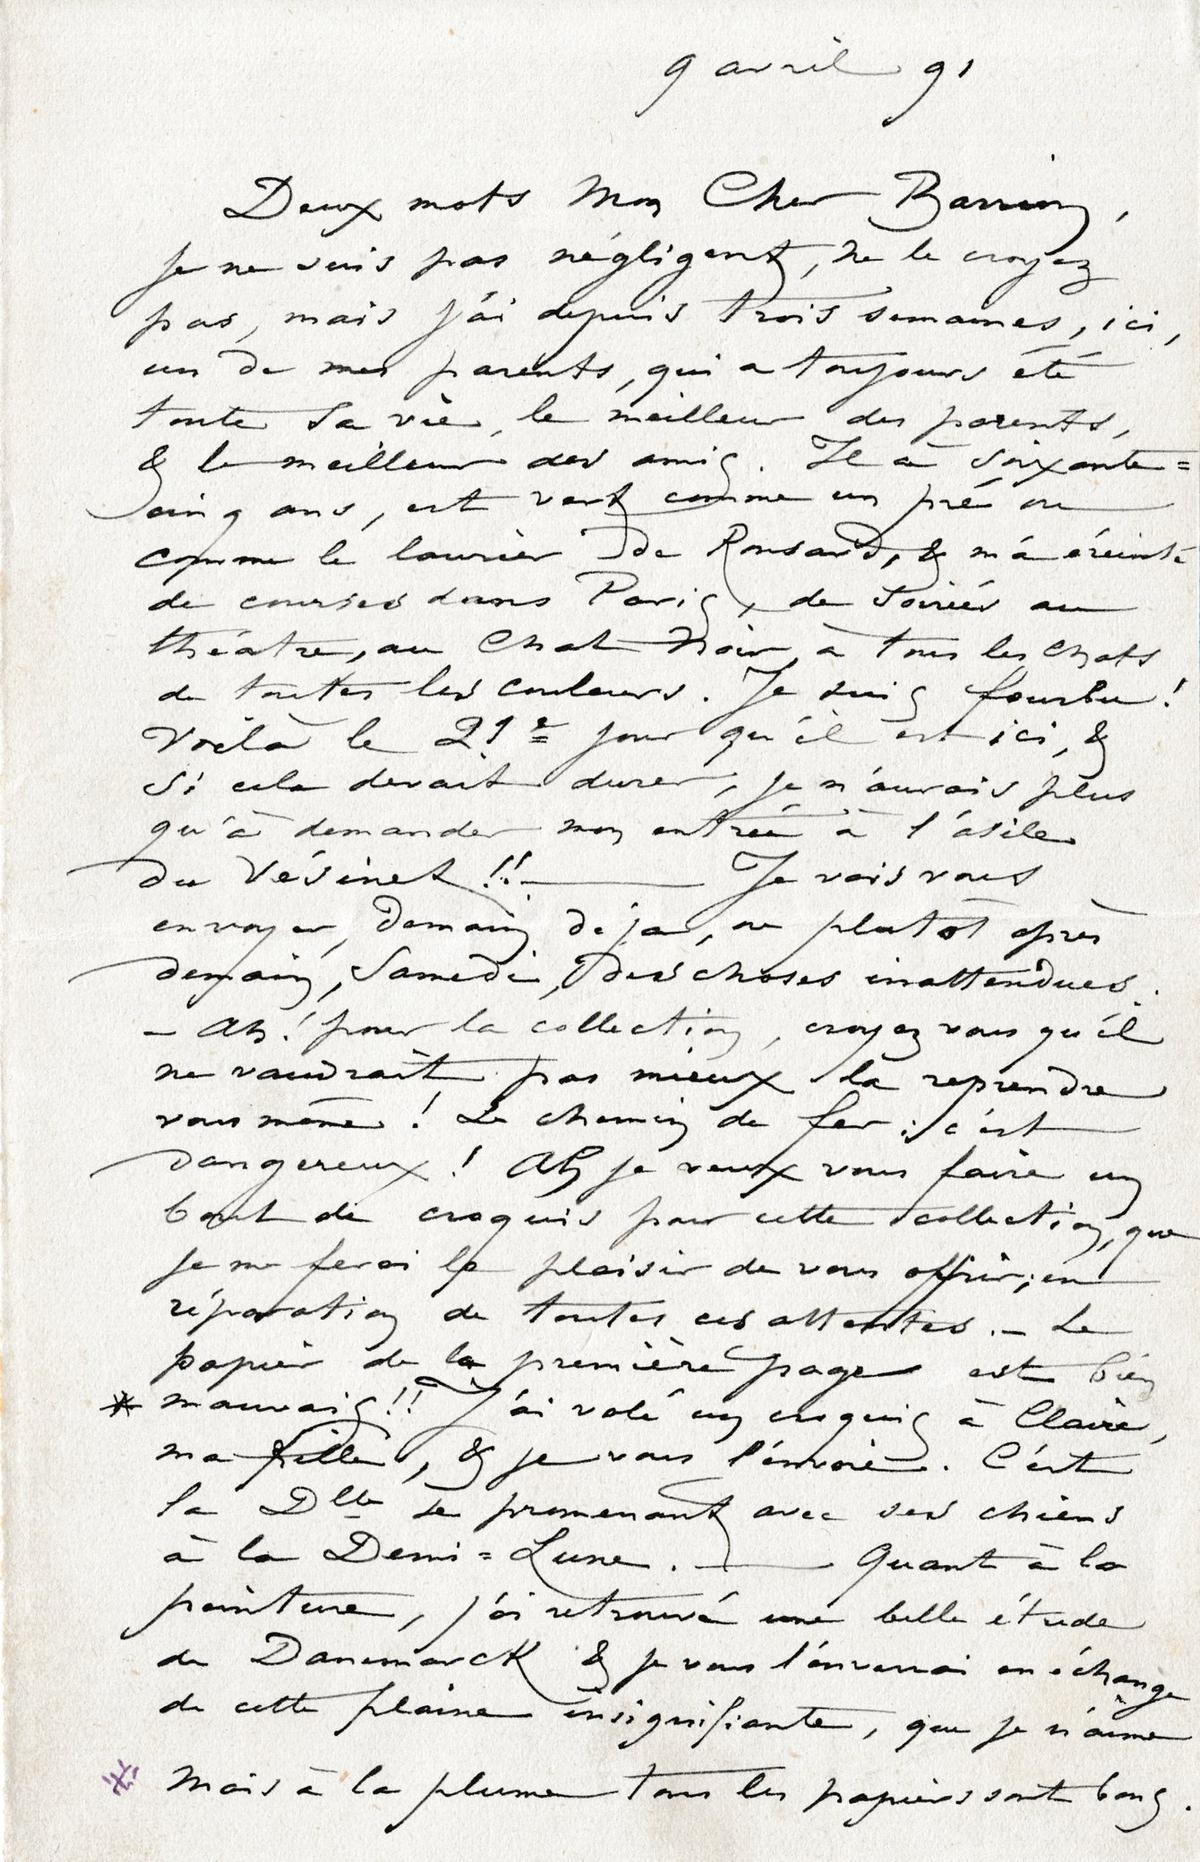 9 avril 91
Deux mots Mon Cher Barrion,
je ne suis pas négligent, ne le croyez
pas, mais j'ai depuis trois semaines, ici,
un de mes parents, qui a toujours été
toute sa vie, le meilleur des parents,
& le meilleur des amis. Il a soixante=
cinq ans, est vert comme un pré ou
comme le laurier de Ronsard, & m'a éreinté
de courses dans Paris, de soirées au
théâtre, au Chat Noir, à tous les chats
de toutes les couleurs. Je suis fourbu!
Voilà le 21e jour qu'il est ici, &
si cela devait durer, je n'aurais plus
qu'à demander mon entrée à l'asile
du Vésinet!! — Je vais vous
envoyer, demain déjà, ou plutôt après
demain, Samedi, des choses inattendues.
– Ah! pour la collection, croyez vous qu'il
ne vaudrait pas mieux la reprendre
vous même! Le chemin de fer: c'est
dangereux! Ah je veux vous faire un
bout de croquis pour cette collection, que
je me ferai le plaisir de vous offrir, en
réparation de toutes ces attentes. – Le
papier de la première page est bien
* mauvais!! J'ai volé un croquis à Claire,
ma fille, & je vous l'envoie. C'est
la Dlle se promenant avec ses chiens
à la Demi=Lune. — Quant à la
peinture, j'ai retrouvé une belle étude
de Danemarck & je vous l'enverrai en échange
de cette plaine insignifiante, que je n'aime
* Mais à la plume tous les papiers sont bons.